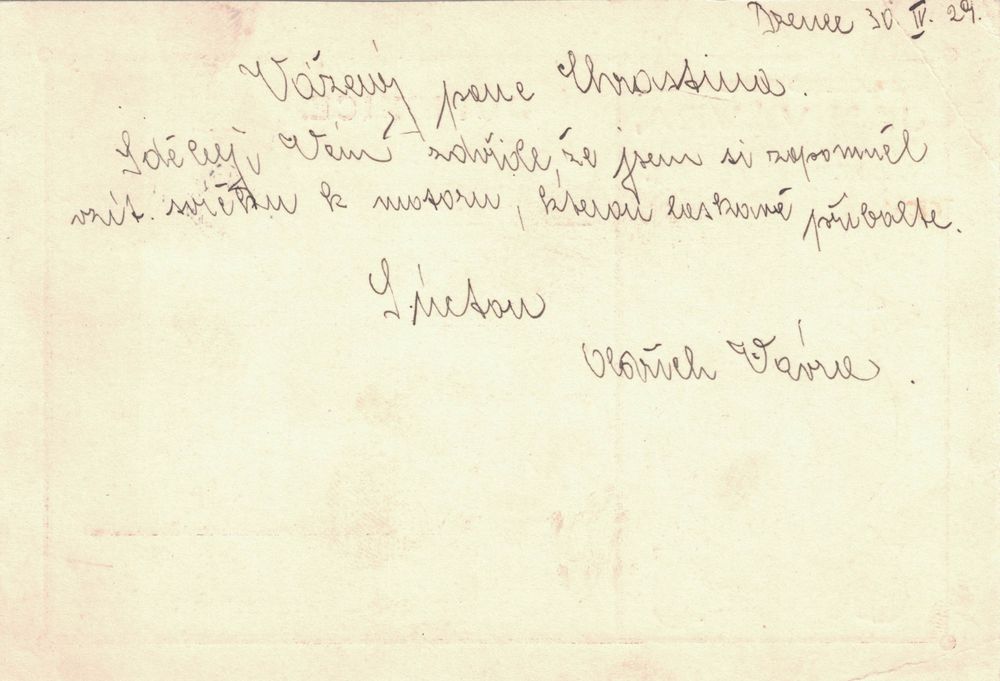 Bzenec 30. IV. 29.
Vážený pane Chrastina.
Sděluji Vám zdvořile, že jsem si zapomněl
vzít. svíčku k motoru, kterou laskavě přibalte.
S úctou
Oldřich Vávra.